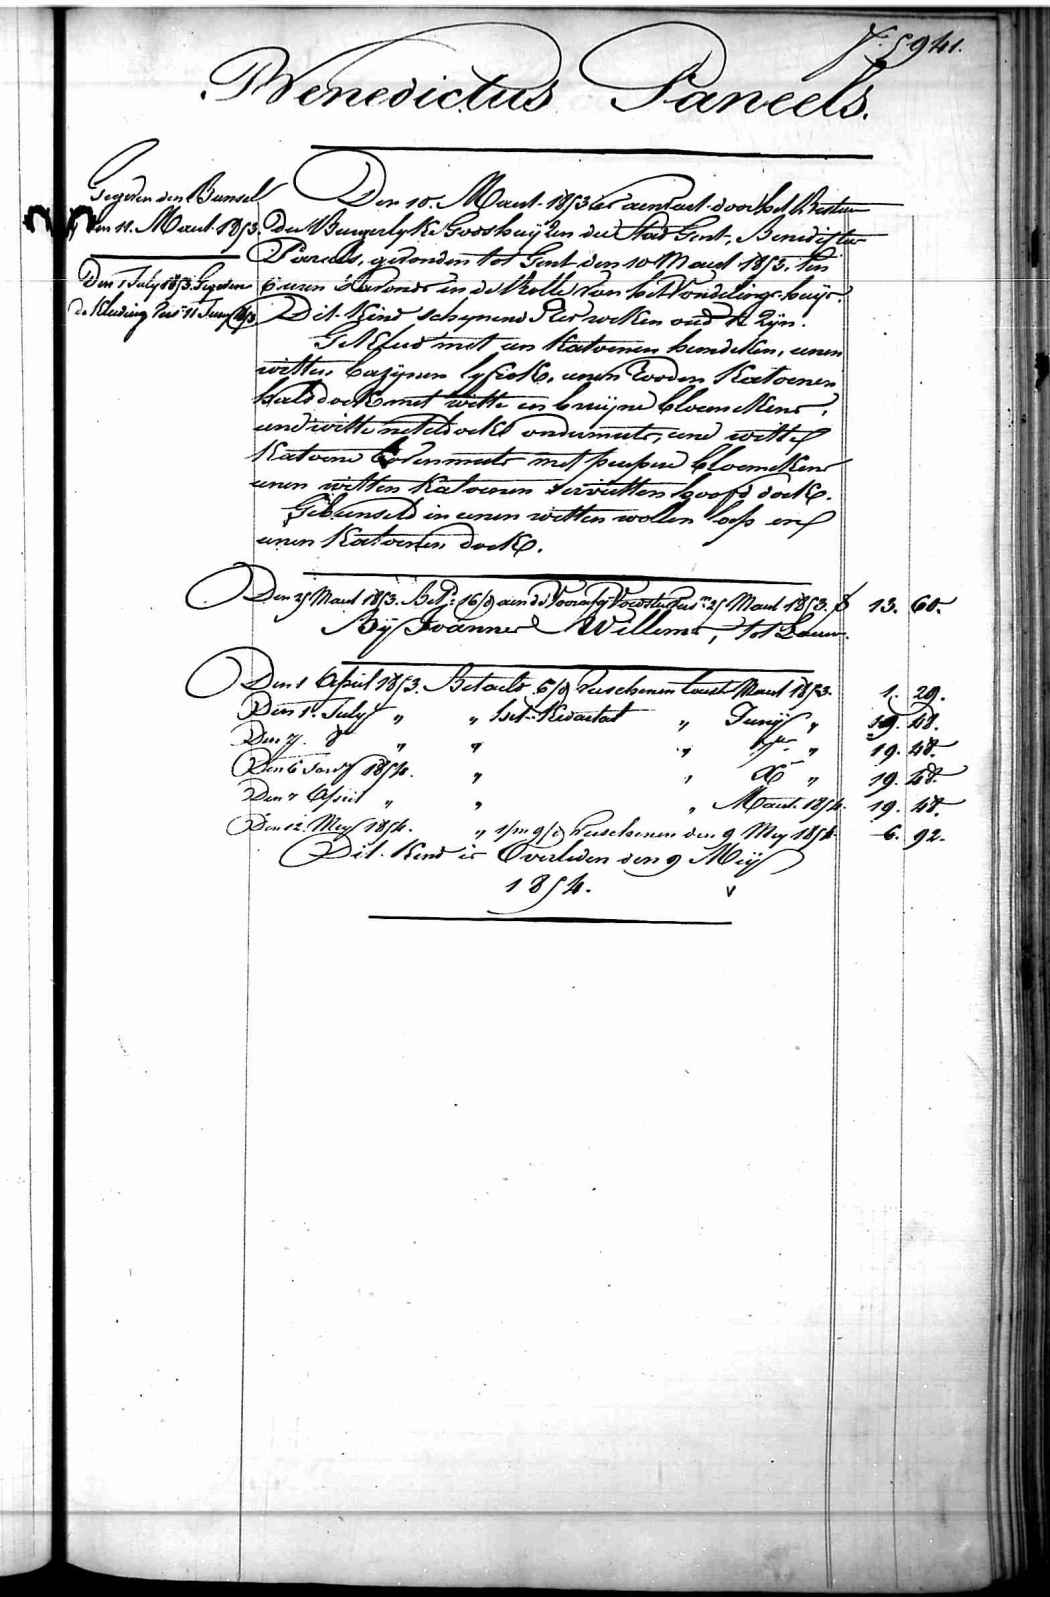 N. 5941.
Benedictus Paneels.
Gegeven den Bunsel
den 11. Maart 1853.
Den 1 July 1853. Gegeven
de Kleeding Pers. 11 Juny 1853
Den 10. Maart 1853 is aenvaert door het Bestier
der Burgerlyke Godshuyzen der Stad Gent, Benedictus
Paneels, gevonden tot Gent den 10 Maart 1853. ten
6 uren 's avonds in de Rolle van het Vondelings-huys.
Dit Kind schynend vier weken oud te zyn.
Gekleed met een Katoenen hemdeken, eenen
witten bazynen lyfrok, eenen rooden Katoenen
halsdoek met witte en bruyne bloemekens,
eene witte neteldoeksche ondermuts, eene witte
Katoene bovenmuts met purpere bloemekens
eenen witten Katoenen servietten hoofddoek.
Gebunseld in eenen witten wollen lap en
eenen Katoenen doek.
Den 25 Maart 1853. Bet. 16/d aen de Voorm. Voedster Pers. 25 Maart 1853. f 13. 60.
By Joannes Willems, tot
Den 1 April 1853. Betaelt 6/d Verschenen laest Maart 1853. 1. 29.
Den 1. July „ „ het Kwartael „ Juny „ 19. 48.
Den 7. 8 „ „ „ 7ber „ 19. 48.
Den 6 Jany 1854. „ „ X „ 19. 48.
Den 7 April „ „ „ Maart 1854. 19. 48.
Den 12. Mey 1854. „ 1/m 9/d Verschenen den 9 Mey 1854. 6. 92.
Dit Kind is Overleden den 9 Mey
1854.